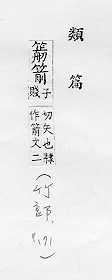 類篇
箭子賤切矢也隸作箭文二(竹部,